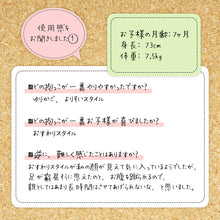 使用感を
お聞きしました①
お子様の月齢：7ヶ月
身長：73cm
体重：7.5kg
■どの抱っこが一番やりやすかったですか？
ゆりかご、よりそいスタイル
■どの抱っこが一番お子様が喜びましたか？
おすわりスタイル
■逆に、難しく感じたことはありますか？
おすわりスタイルが私の顔が見えて気に入っているようでしたが、
足が窮屈そうに思えたのと、お腹を蹴られるので、
親としてはあまり長時間はさせてあげられないな、と思いました。